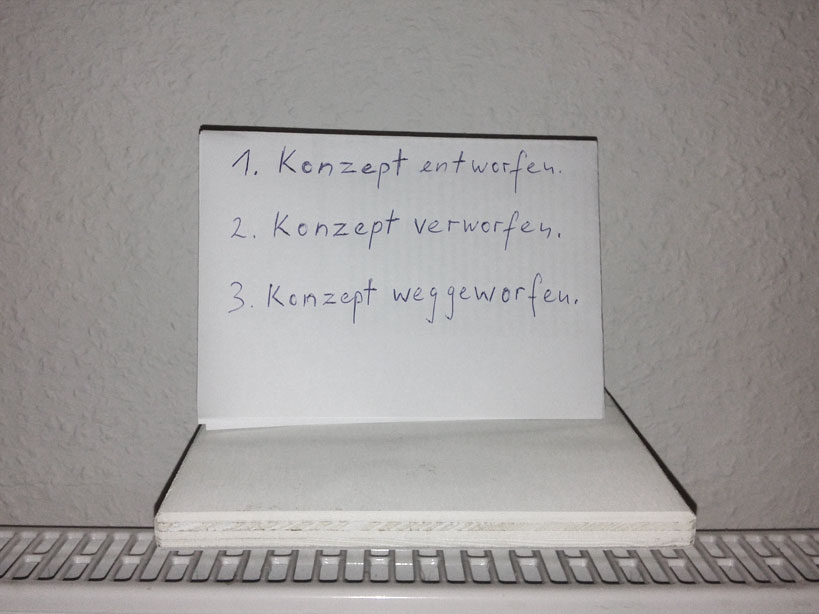 1. Konzept entworfen.
2. Konzept verworfen.
3. Konzept weggeworfen.